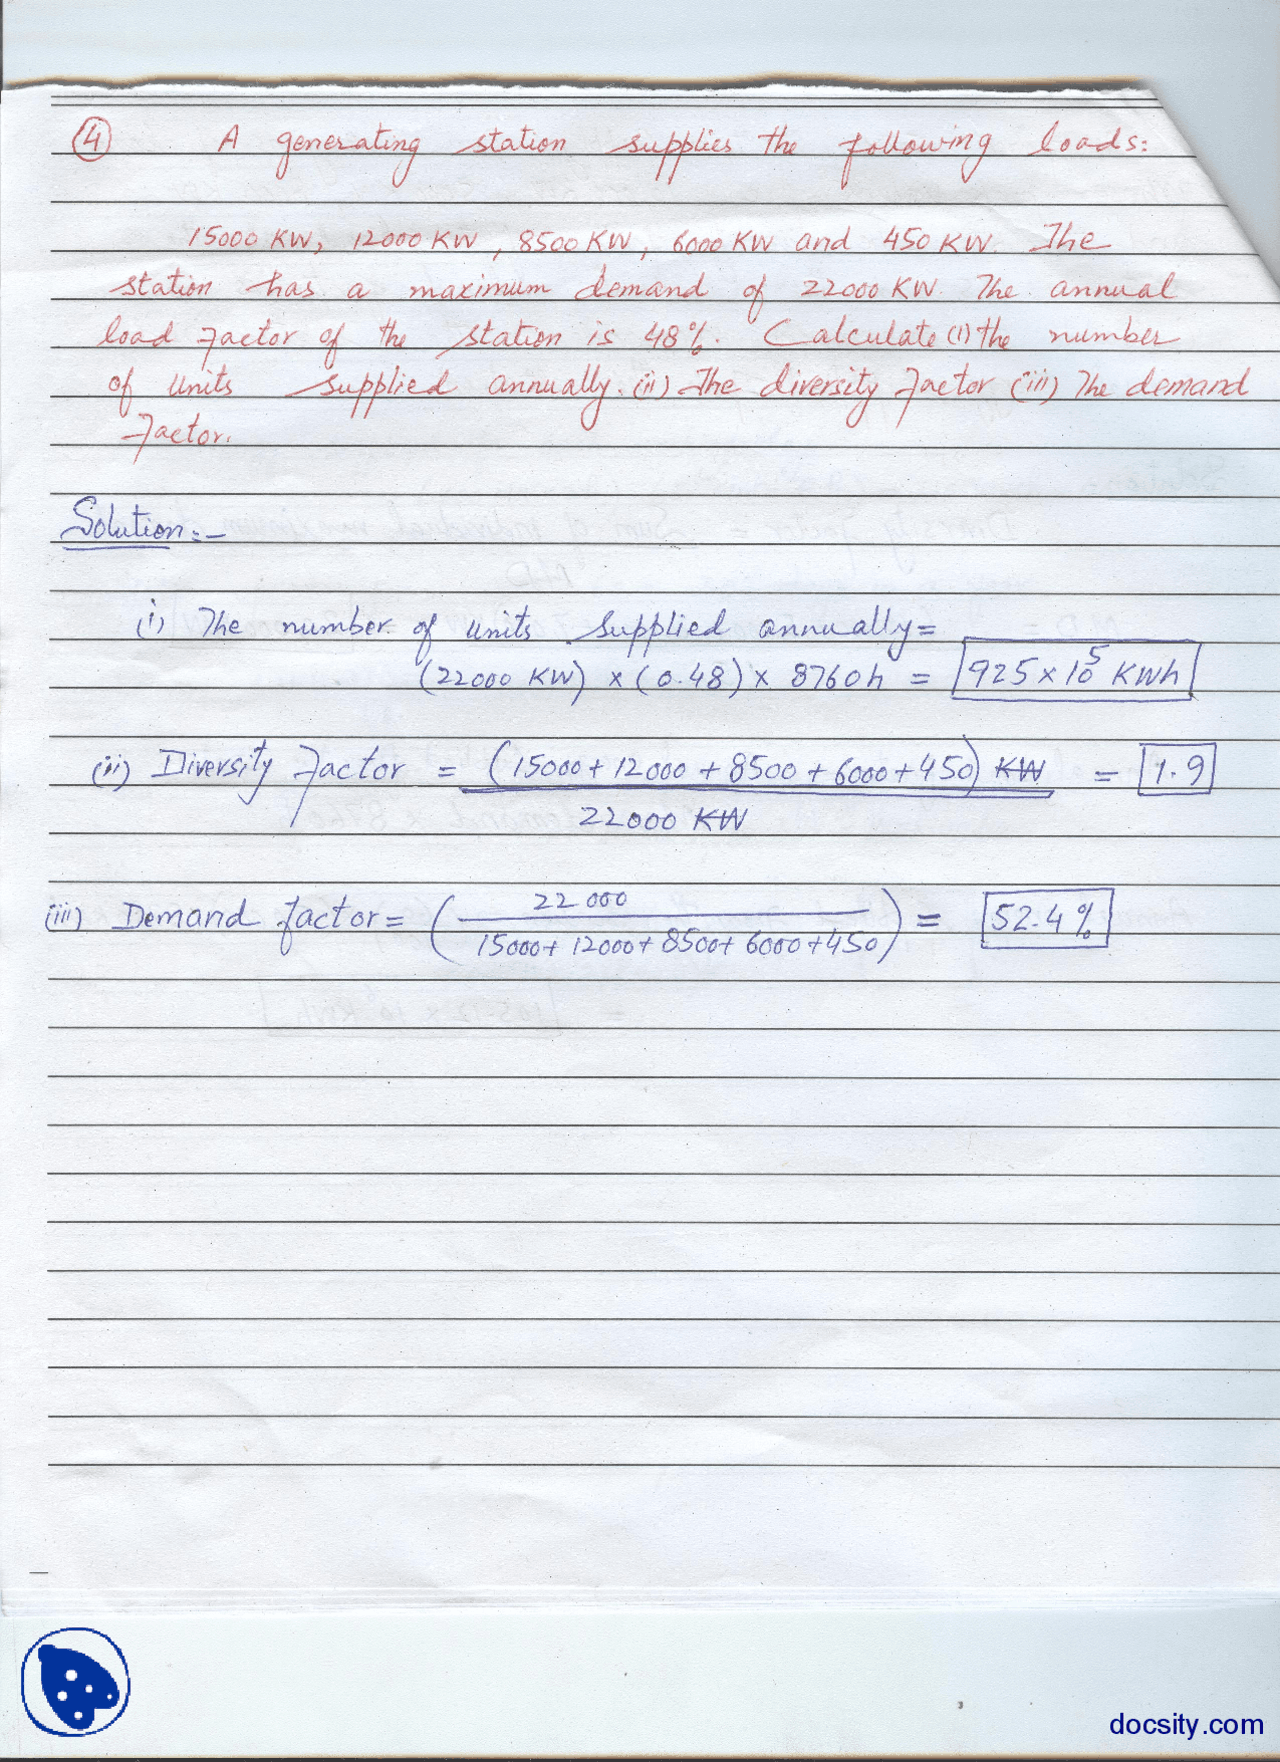 4 A generating station supplies the following loads:
15000 KW, 12000 KW, 8500 KW, 6000 KW and 450 KW. The
station has a maximum demand of 22000 KW. The annual
load factor of the station is 48%. Calculate (i) the number
of units supplied annually. (ii) The diversity factor (iii) The demand
factor.
Solution:-
(i) The number of units supplied annually=
(22000 KW) × (0.48) × 8760h = 925×10⁵ KWh
(ii) Diversity factor = (15000+12000+8500+6000+450) KW = 1.9
22000 KW
(iii) Demand factor = (22000 / 15000+12000+8500+6000+450) = 52.4%
docsity.com